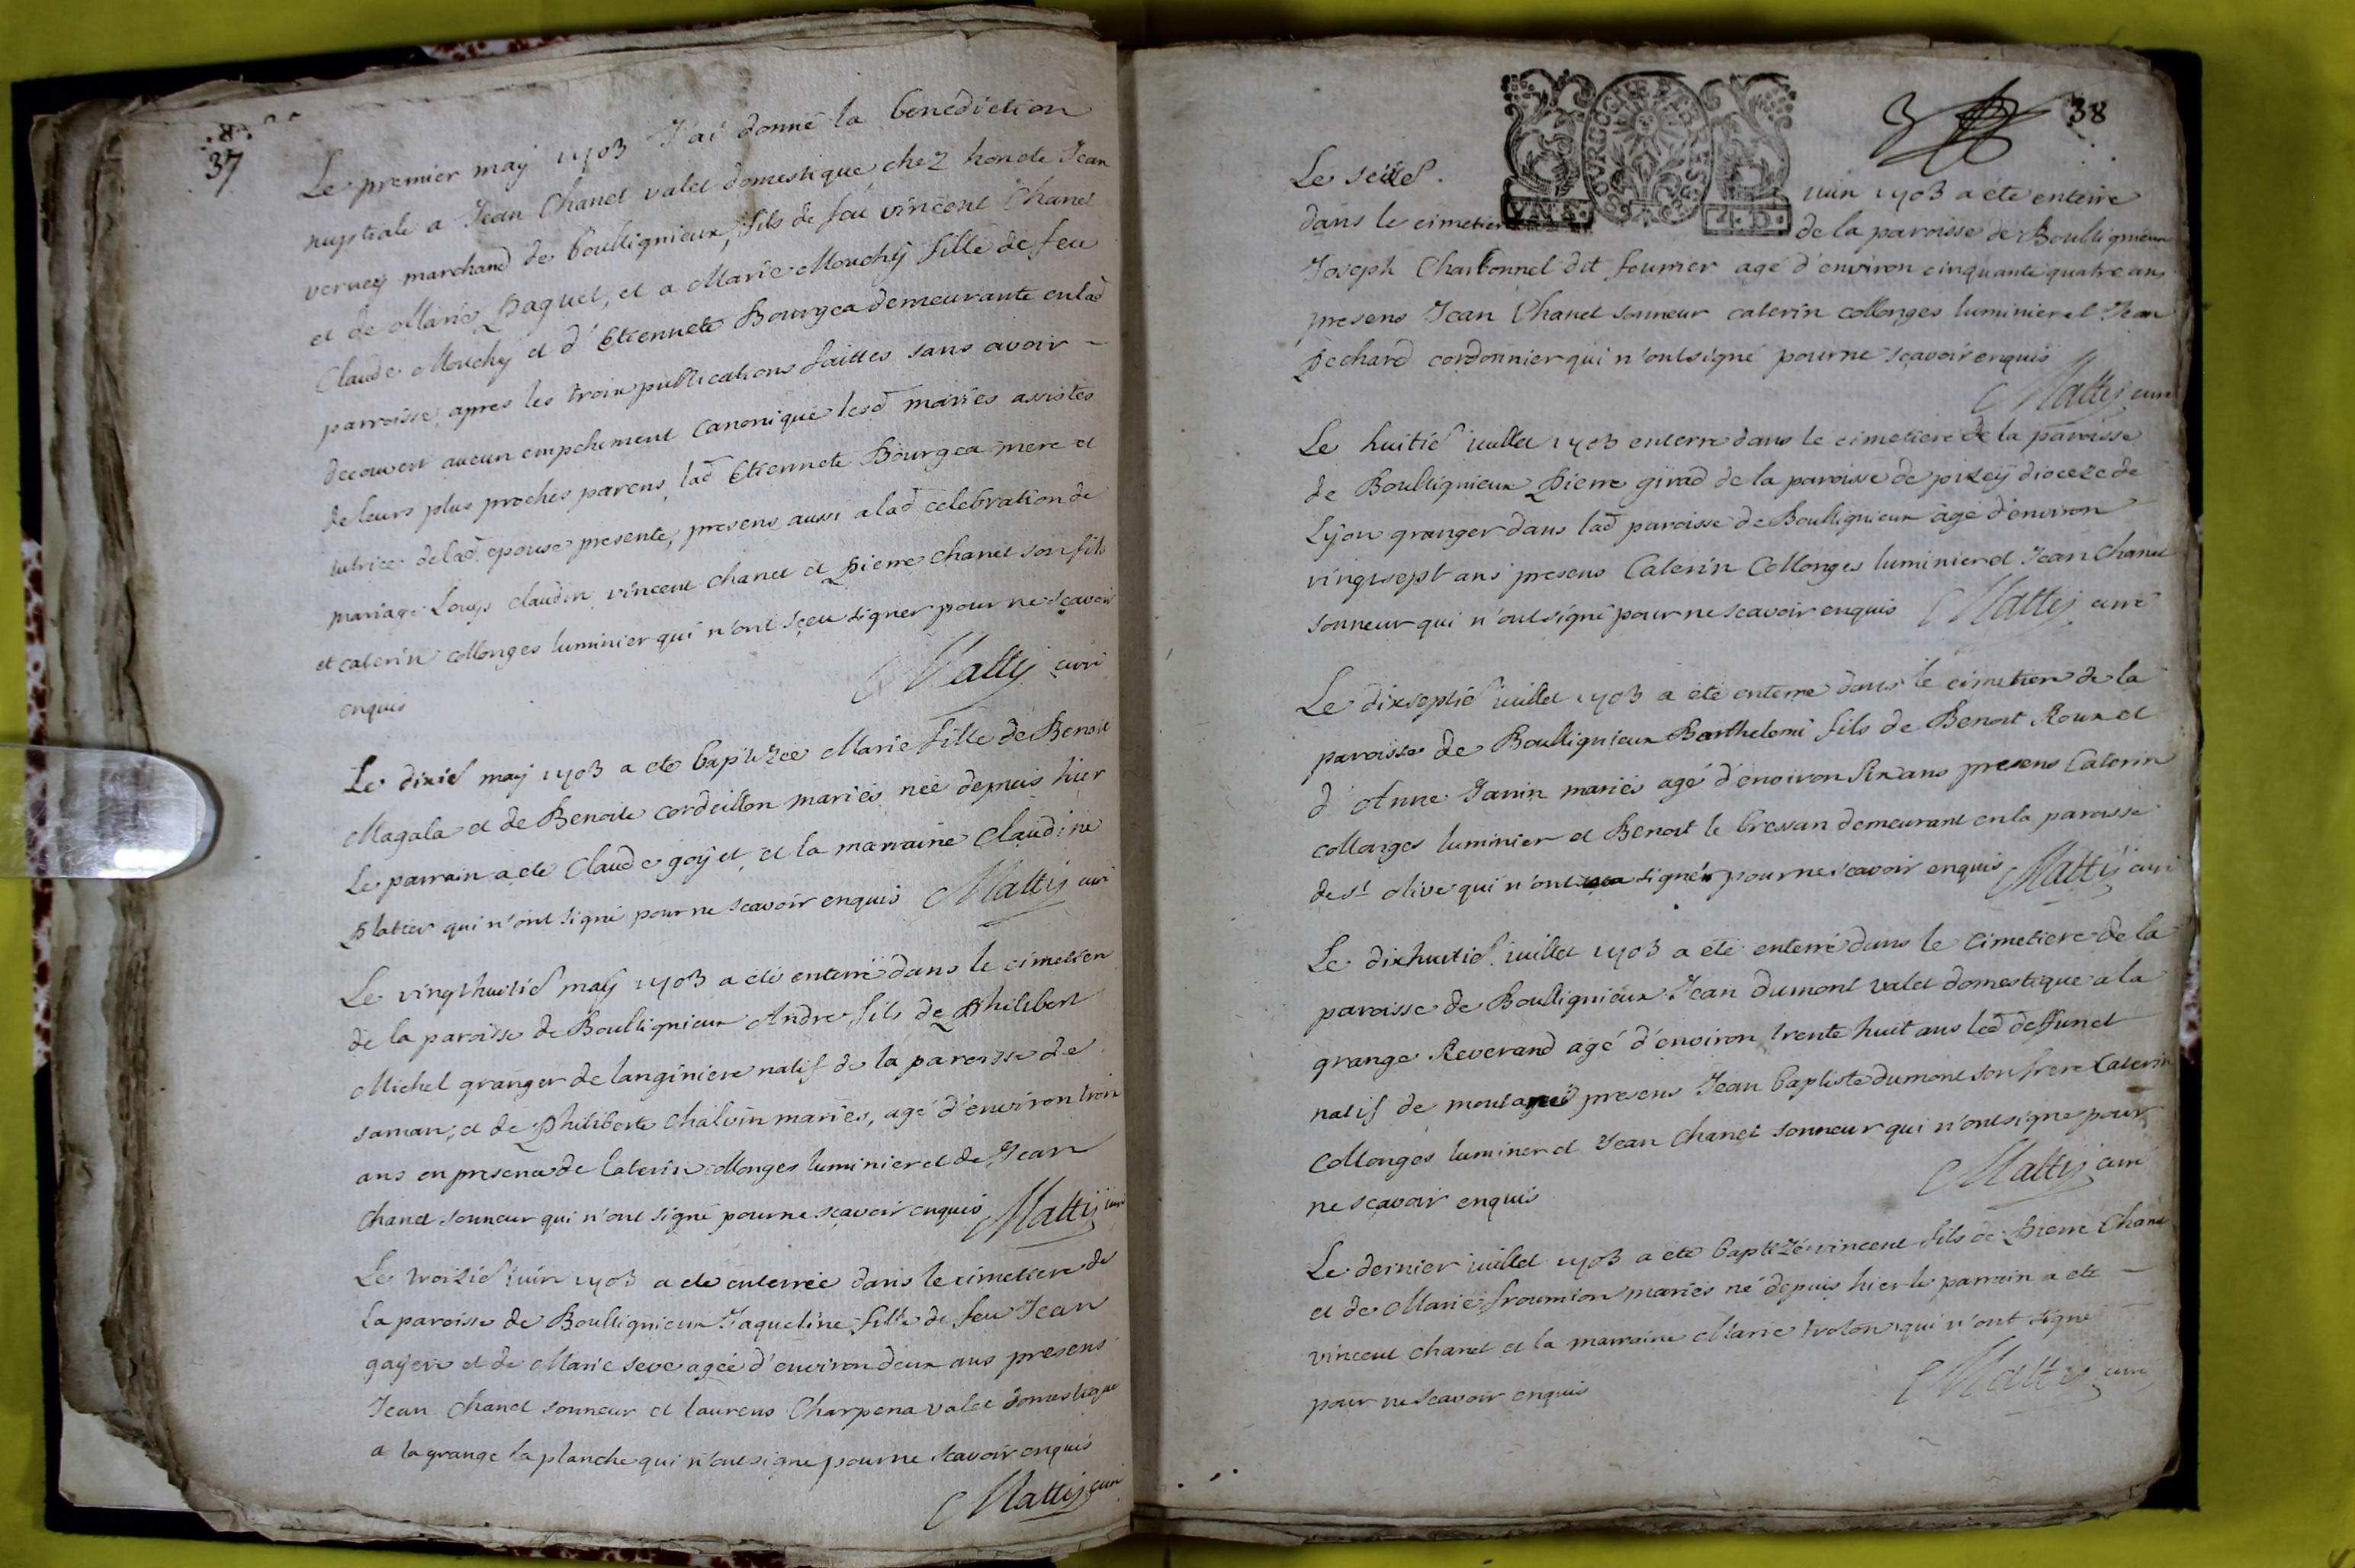 37
Le premier maÿ 1703 J'ai donné la benediction
nuptiale a Jean Chanel valet domestique chez honete Jean
verney marchand de boullignieux, fils de feu vincent Chanel
et de Marie Paquet, et a Marie Mouchÿ fille de feu
Claude Mouchÿ et d'Etiennete Bourgea demeurante en lad
parroisse, apres les troix publications faittes sans avoir
decouvert aucun empchement canonique lesd mariés assistés
de leurs plus proches parens, lad Etiennete Bourgea mere et
tutrice de lad. epouse presente, presens aussi a lad celebration de
mariage Louys claudin vincent chanel et Pierre chanel son fils
et caterin collonges luminier qui n'ont sçeu signer pour ne sçavoir
enquis Mattÿ curé
Le dixie maÿ 1703 a ete baptizée Marie fille de Benoit
Magala et de Benoite cordeillon mariés née depuis hier
le parrain a ete Claude goÿet, et la marraine Claudine
Platier qui n'ont signé pour ne scavoir enquis Mattÿ curé
Le vingthuitie maÿ 1703 a eté enterré dans le cimetiere
de la paroisse de Boullignieux Andre fils de Philibert
Michel granger de langiniere natif de la paroisse de
saman, et de Philiberte Chalvin mariés, agé d'environ trois
ans en presence de Caterin collonges luminier et de Jean
chanel sonneur qui n'ont signé pour ne sçavoir enquis Mattÿ curé
Le troizie iuin 1703 a ete enterrée dans le cimetiere de
la paroisse de Boullignieux Jaqueline fille de feu Jean
gaÿere et de Marie seve agée d'environ deux ans presens
Jean chanel sonneur et laurens Charpena valet domestique
a la grange la planche qui n'ont signe pour ne scavoir enquis
Mattÿ curé
38
VN S. 4. D.
Le seizie. iuin 1703 a éte enterré
dans le cimetiere de la paroisse de Boullignieux
Joseph Charbonnel dit fournier agé d'environ cinquante quatre ans
presens Jean Chanel sonneur caterin collonges luminier et Jean
Pechard cordonnier qui n'ont signé pour ne sçavoir enquis
Mattÿ curé
Le huitie iuillet 1703 enterré dans le cimetiere de la paroisse
de Boullignieux Pierre girad de la paroisse de pizeÿ dioceze de
Lÿon granger dans lad paroisse de Boullignieux agé d'environ
vingtsept ans presens Caterin Collonges luminier et Jean Chanel
sonneur qui n'ont signé pour ne scavoir enquis Mattÿ curé
Le dixseptie iuillet 1703 a été enterré dans le cimetiere de la
paroisse de Boullignieux Barthelemi fils de Benoit Roux et
d'Anne Janin mariés agé d'environ six ans presens Caterin
collonges luminier et Benoit le bressan demeurant en la paroisse
de st olive qui n'ont signé pour ne scavoir enquis Mattÿ curé
Le dixhuitie iuillet 1703 a été enterré dans le cimetiere de la
paroisse de Boullignieux Jean dumont valet domestique a la
grange Reverand agé d'environ trente huit ans led deffunct
natif de presens Jean baptiste dumont son frere Caterin
Collonges luminer et Jean Chanel sonneur qui n'ont signe pour
ne sçavoir enquis Mattÿ curé
Le dernier iuillet 1703 a ete baptizé vincent fils de Pierre Chanel
et de Marie froumion mariés né depuis hier le parrain a ete
vincent chanel et la marraine Marie trolon qui n'ont signé
pour ne scavoir enquis Mattÿ curé